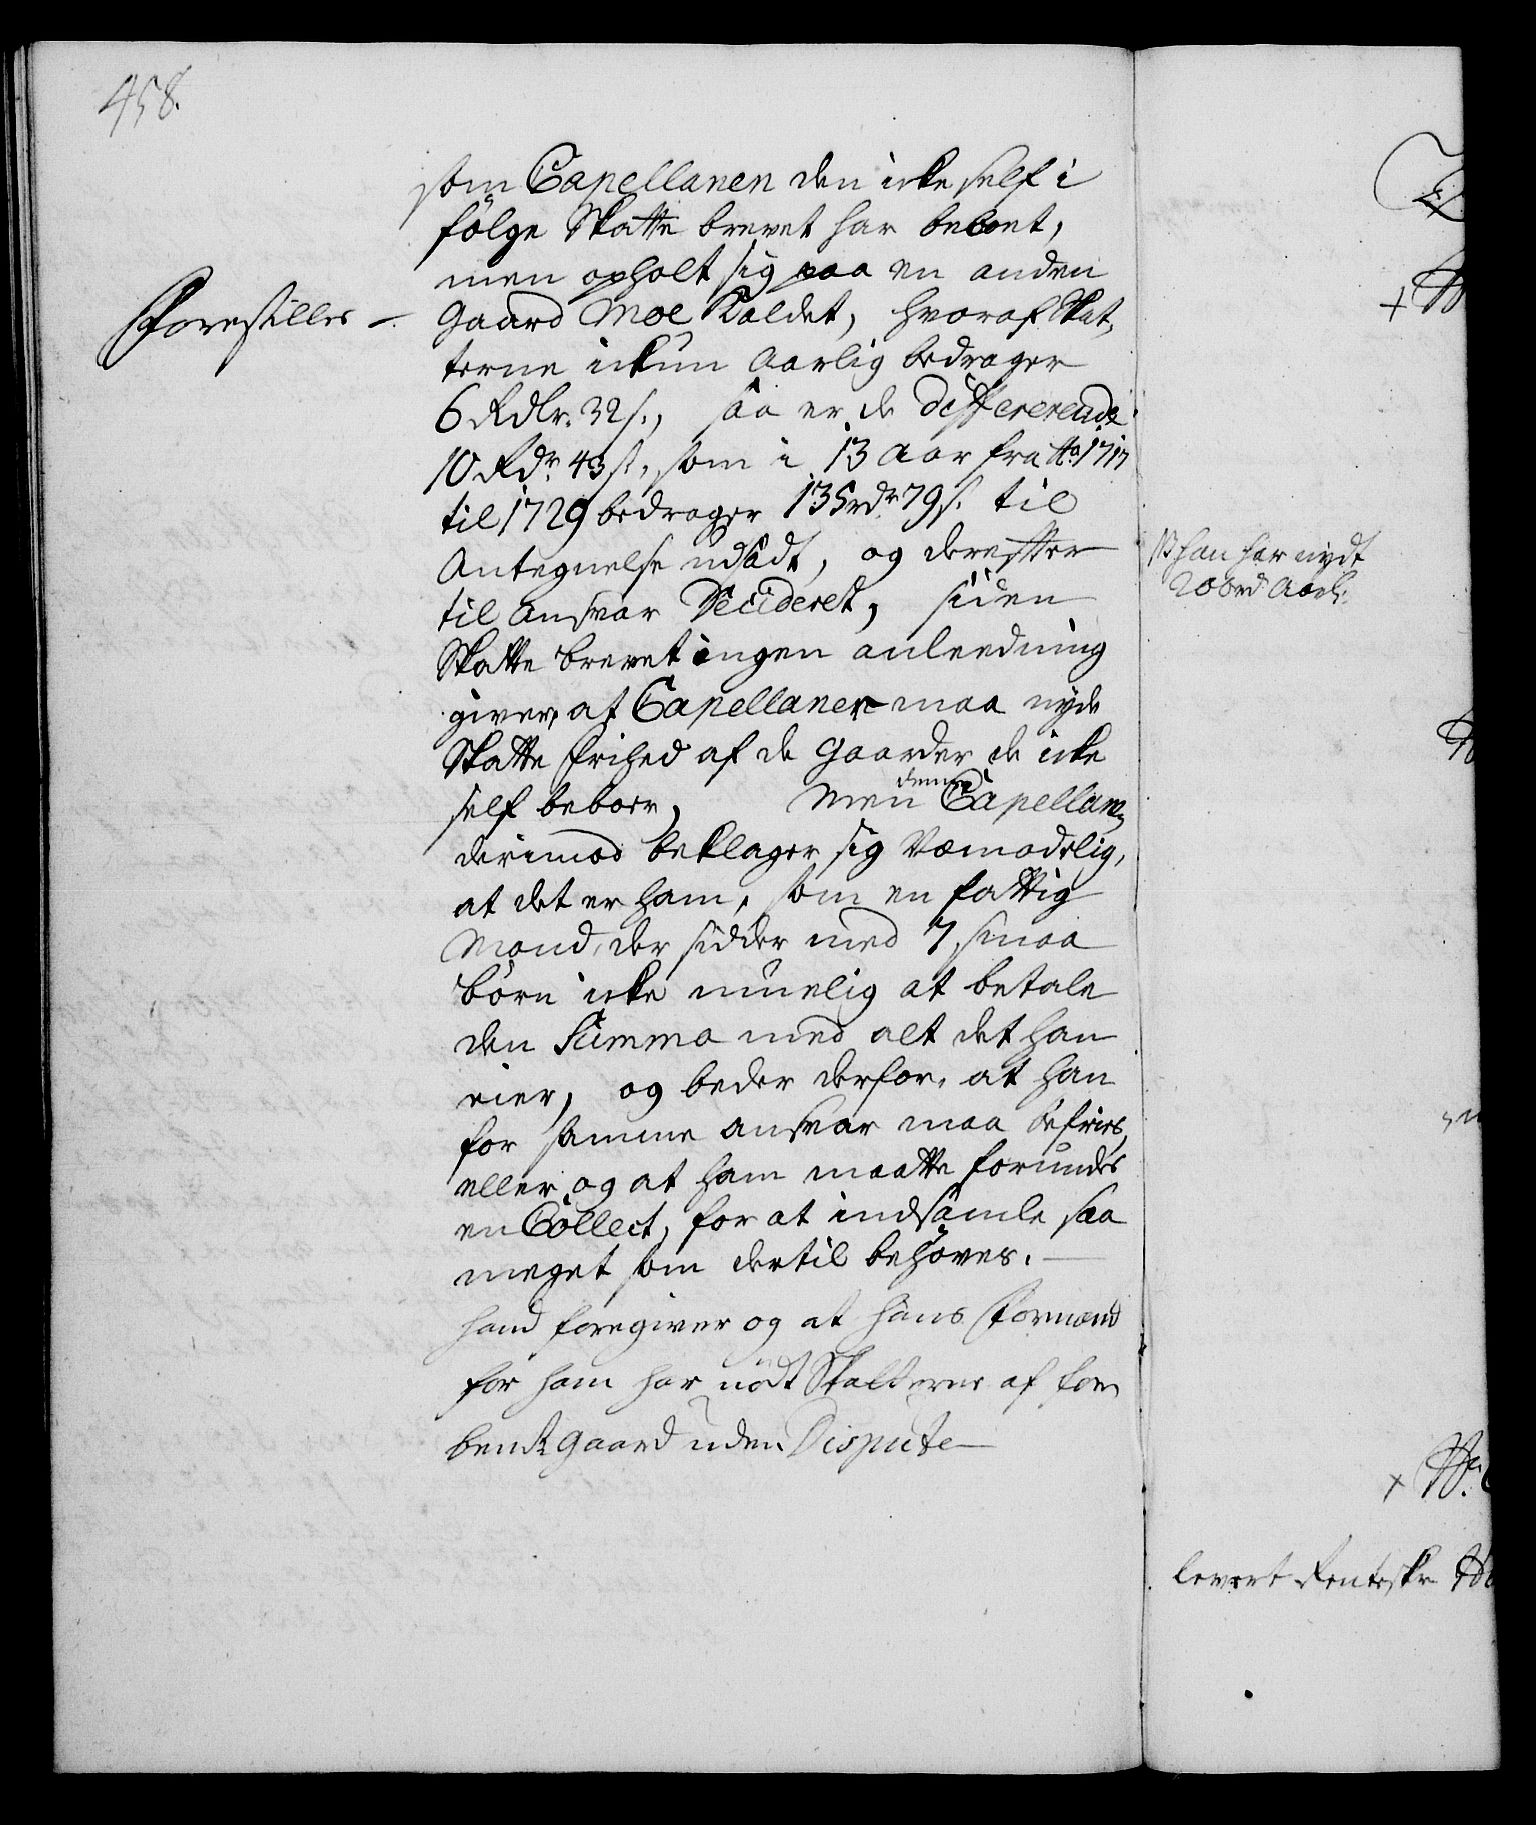 458.
som Capellanen den icke self i
fölge Skatte brevet har beboet,
men opholt sig paa en anden
Forestilles -
Gaard Moe Kaldet, hvoraf Skat,
terne ickun Aarlig bedrager
6 Rdlr. 32 s., saa er de differerende
10 Rdr. 43 s., som i 13 Aar fra Ao 1717
til 1729 bedrager 135 rdr 79 s. til
Antegnelse udsadt, og derefter
til ansvar Decideret, siden
Skatte brevet ingen anleedning
giver, at Capellaner maa nyde
Skatte frihed af de Gaarder de icke
self beboer, Men denne Capellan,
derimod beklager sig Vemodelig,
at det er ham, som en fattig
Mand, der sidder med 7 smaa
börn icke muelig at betale
den Summa med alt det han
eier, og beder derfor, at han
for samme ansvar maa befries,
eller og at ham maatte forundes
en Collect, for at indsamle saa
meget som dertil behöves.
hand foregiver og at hans Formænd
för ham har nödt Skatterne af for
benta Gaard uden Dispute
han har nydt
200 rd Aarl.
levert Renteskr